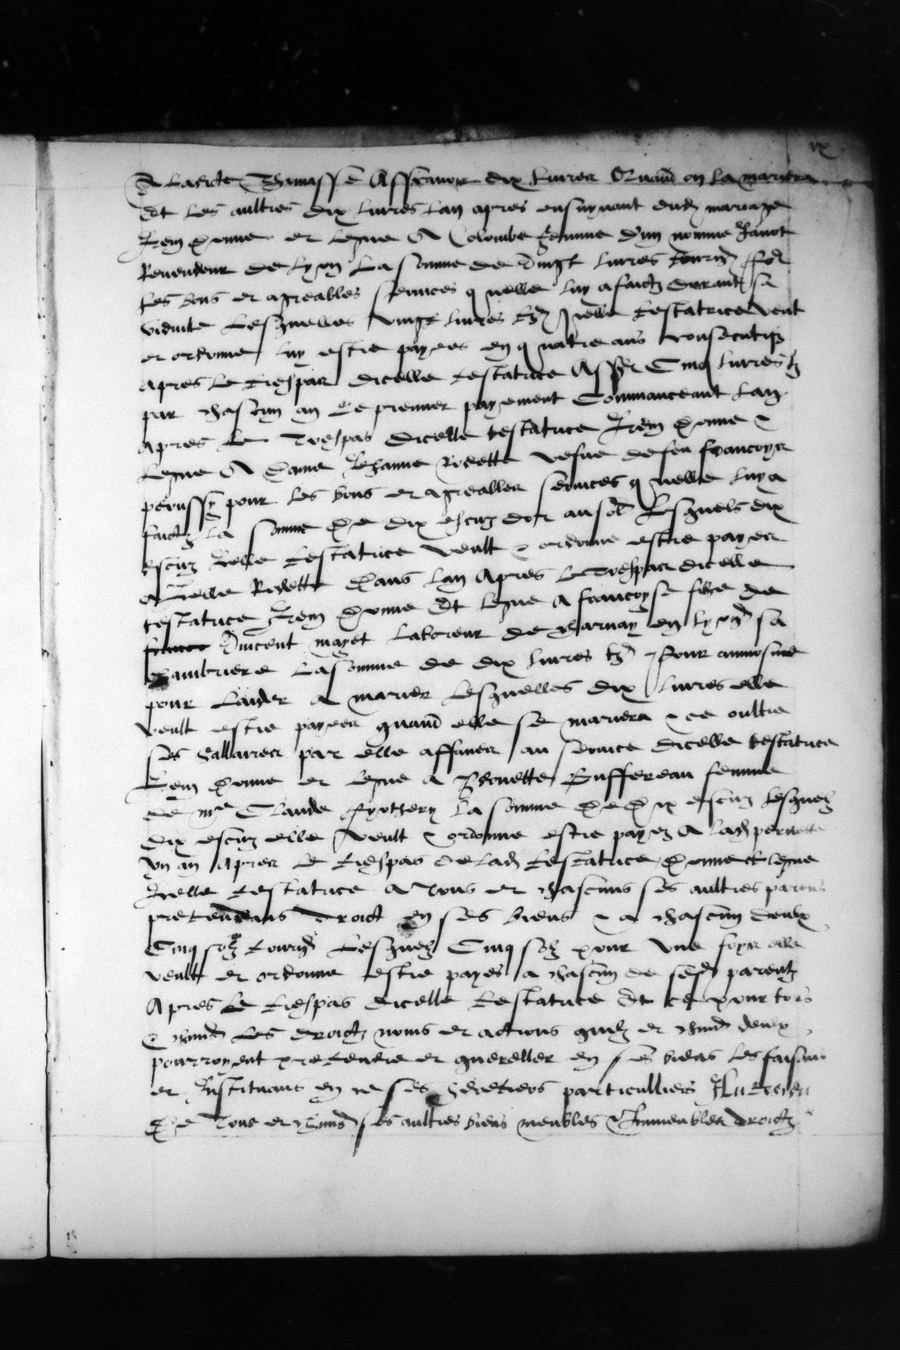 A ladicte Thomasse Assavoir dix livres Quand on la mariera
Et les aultres dix livres lan apres ensuyvant dudz mariaige
Item donne et legue A Colombe femme d'un nomme Janot
Revendeur de Lyon La somme de Vingt livres tourn Pour
les bons et agreables services q uelle luy a faictz durant sa
viduite Lesquelles vingt livres tz icelle testatrice veult
et ordonne luy estre payees en q uatre ans consecutifz
apres le trespas dicelle testatrice Assr Cinq livres tz
par chascun an Le premier payement Commanceant Lan
apres le trespas dicelle testatrice Item donne &
legue A dame Jehanne Rodette vefve de feu francoys
perussy pour les bons et agreables services q uelle luy a
faictz la somme de dix escuz dor au sol Lesquelz dix
escuz icelle testatrice veult & ordonne estre payez
a icelle Rodette dans lan apres le trespas dicelle
testatrice Item donne Et legue a francoyse fille de
Vincent mayet laboreur de charnay en lyon sa
chambriere La somme de dix livres tz Pour aumosne
pour laider a marier Lesquelles dix livres elle
veult estre payees quand elle se mariera & ce oultre
ses sallaires par elle affanes au service dicelle testatrice
Item donne et legue a Benoette Buffereau femme
de me Claude fyothery la somme de dix escuz lesquelz
dix escuz elle veult & ordonne estre payez A lad
Un an apres le trespas de lad testatrice donne et legue
icelle testatrice a tous et chascuns ses aultres parens
pretendans droict en ses biens & a chascun deulx
Cinq solz tournois Lesquelz Cinq solz pour une foys elle
veult et ordonne estre payes a chascun de sesd parentz
Apres le trespas dicelle testatrice Et ce pour tous
& chund les droictz noms et actions quilz et chund deulx
pourroyent pretendre et quereller en ses biens les faisans
et Instituans en ce ses heretiers particulliers
De Tous et chuns ses aultres biens meubles & Immeubles droictz